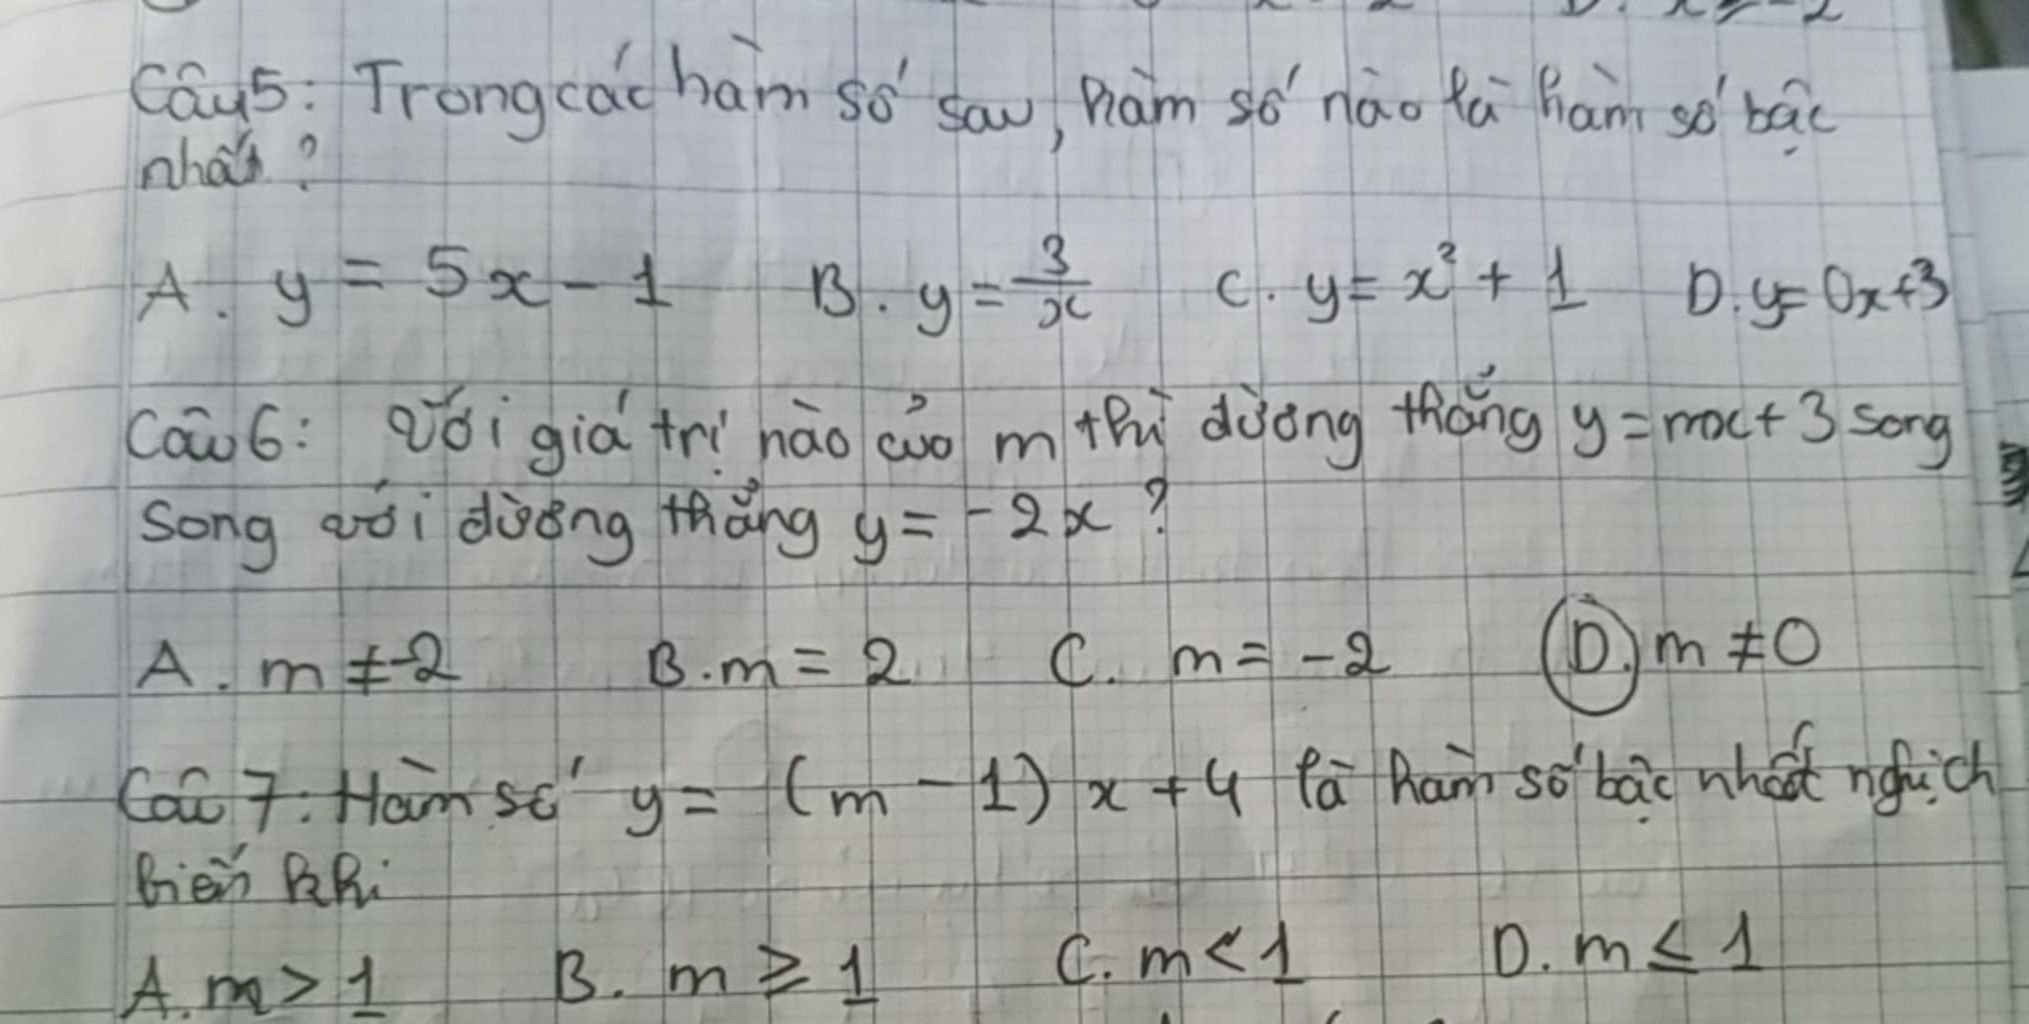 D. x ≥ -2
Câu5: Trong các hàm số sau, hàm số nào là hàm số bậc
nhất?
A. y = 5x - 1 B. y = 3/x C. y = x² + 1 D. y = 0x+3
Câu 6: Với giá trị nào của m thì đường thẳng y = mx + 3 song
song với đường thẳng y = -2x?
A. m ≠ -2 B. m = 2 C. m = -2 D. m ≠ 0
Câu 7: Hàm số y = (m - 1) x + 4 là hàm số bậc nhất nghịch
biến khi
A. m > 1 B. m ≥ 1 C. m < 1 D. m ≤ 1